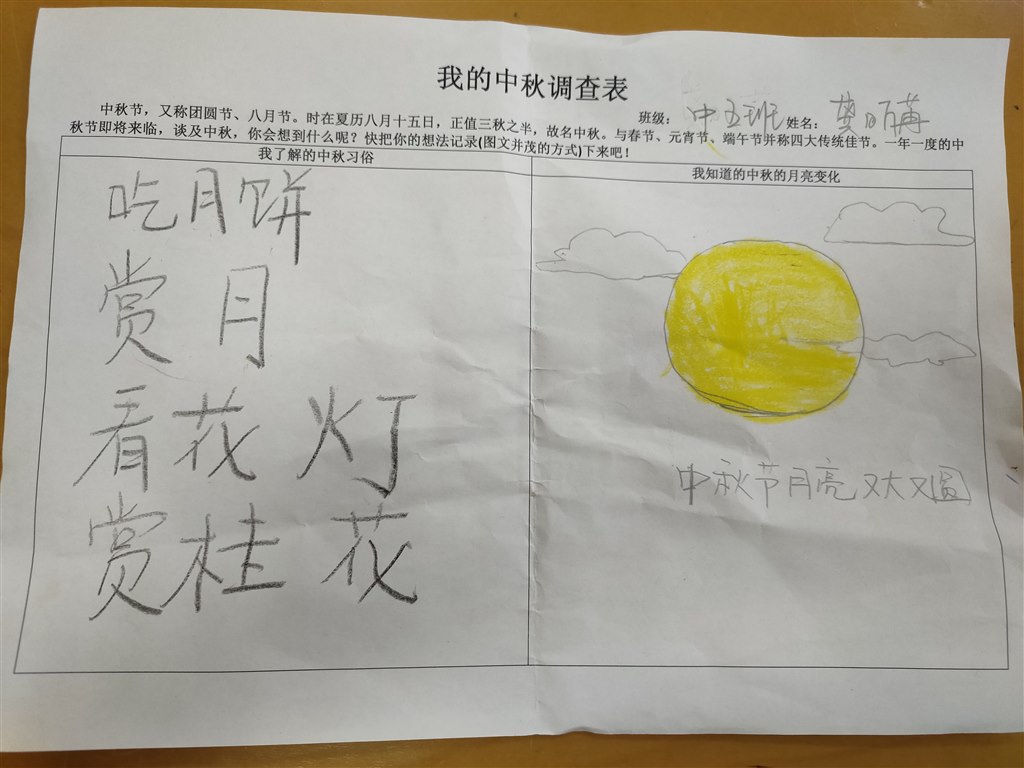 我的中秋调查表
班级： 中五班 姓名：
中秋节，又称团圆节、八月节。时在夏历八月十五日，正值三秋之半，故名中秋。与春节、元宵节、端午节并称四大传统佳节。一年一度的中
秋节即将来临，谈及中秋，你会想到什么呢？快把你的想法记录(图文并茂的方式)下来吧！
我了解的中秋习俗
吃月饼
赏月
看花灯
赏桂花
我知道的中秋的月亮变化
中秋节月亮又大又圆